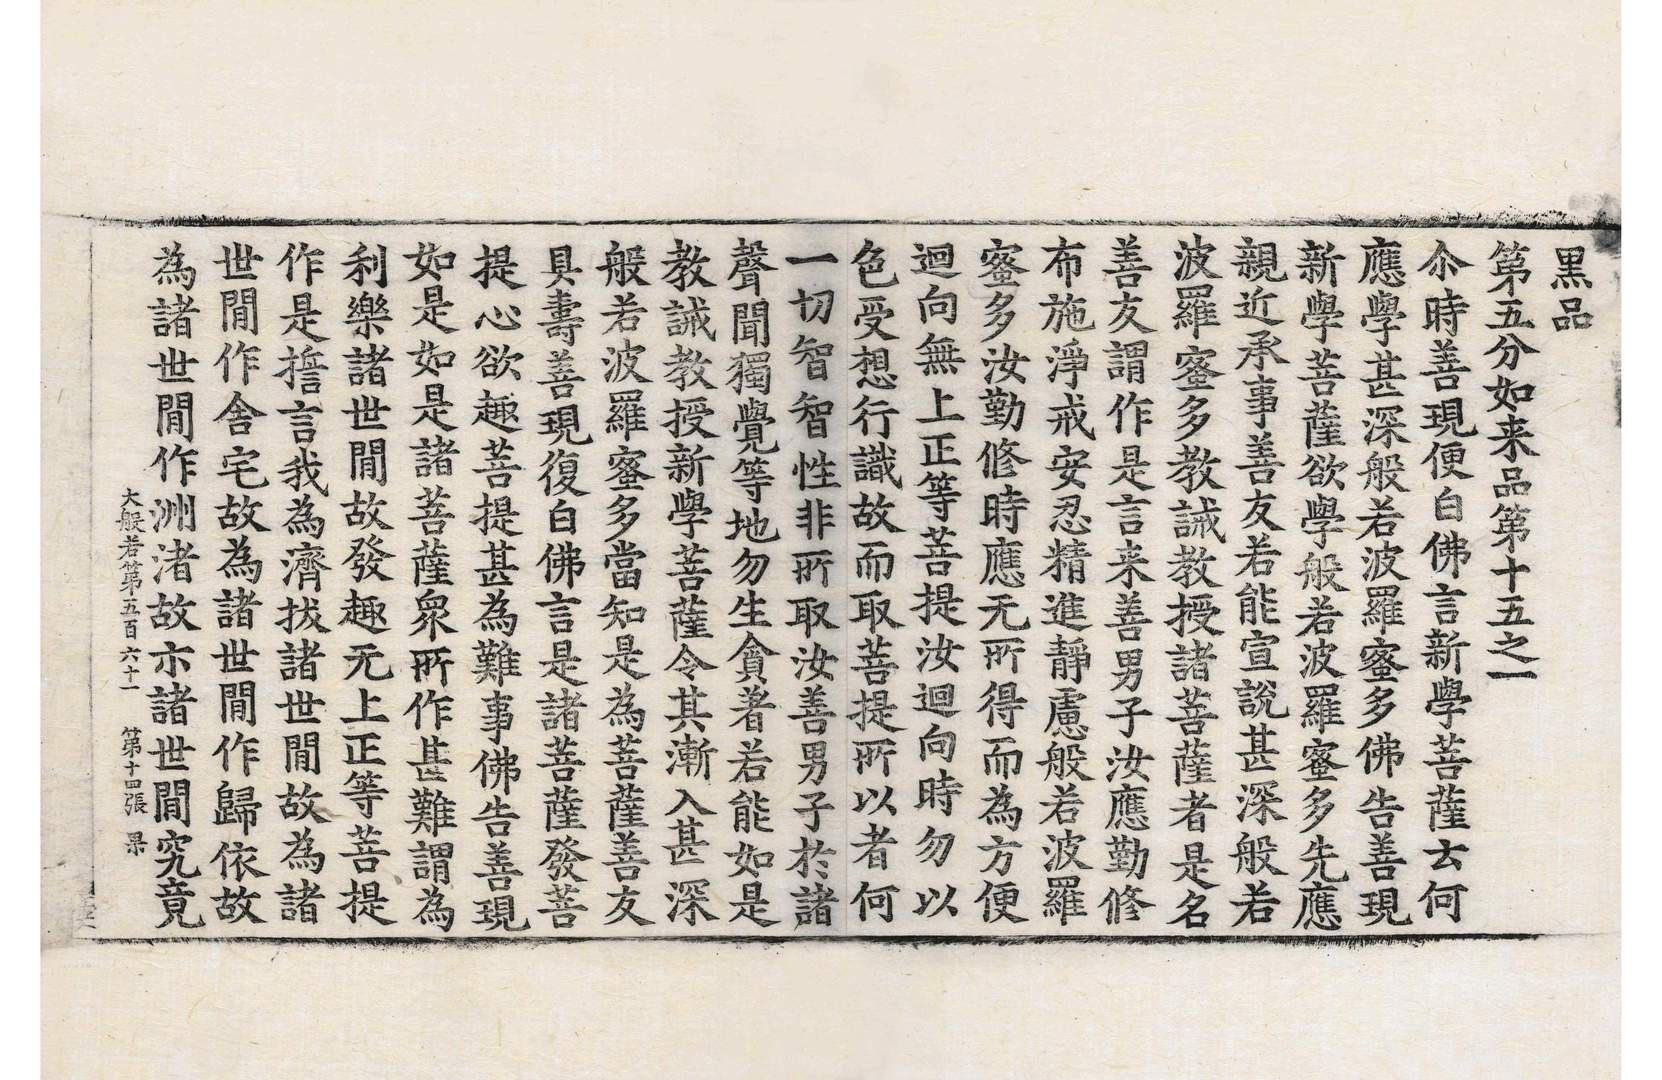 黒品
第五分如来品第十五之一
尒時善現便白佛言新學菩薩云何
應學甚深般若波羅蜜多佛告善現
新學菩薩欲學般若波羅蜜多先應
親近承事善友若能宣說甚深般若
波羅蜜多教誡教授諸菩薩者是名
善友謂作是言来善男子汝應勤修
布施淨戒安忍精進靜慮般若波羅
蜜多汝勤修時應无所得而為方便
迴向無上正等菩提汝迴向時勿以
色受想行識故而取菩提所以者何
一切智智性非所取汝善男子於諸
聲聞獨覺等地勿生貪著若能如是
教誡教授新學菩薩令其漸入甚深
般若波羅蜜多當知是為菩薩善友
具壽善現復白佛言是諸菩薩發菩
提心欲趣菩提甚為難事佛告善現
如是如是諸菩薩衆所作甚難謂為
利樂諸世閒故發趣无上正等菩提
作是擔言我為濟拔諸世閒故為諸
世閒作舍宅故為諸世閒作歸依故
為諸世閒作洲渚故亦諸世閒究竟
大般若第五百六十一 第十四張 果